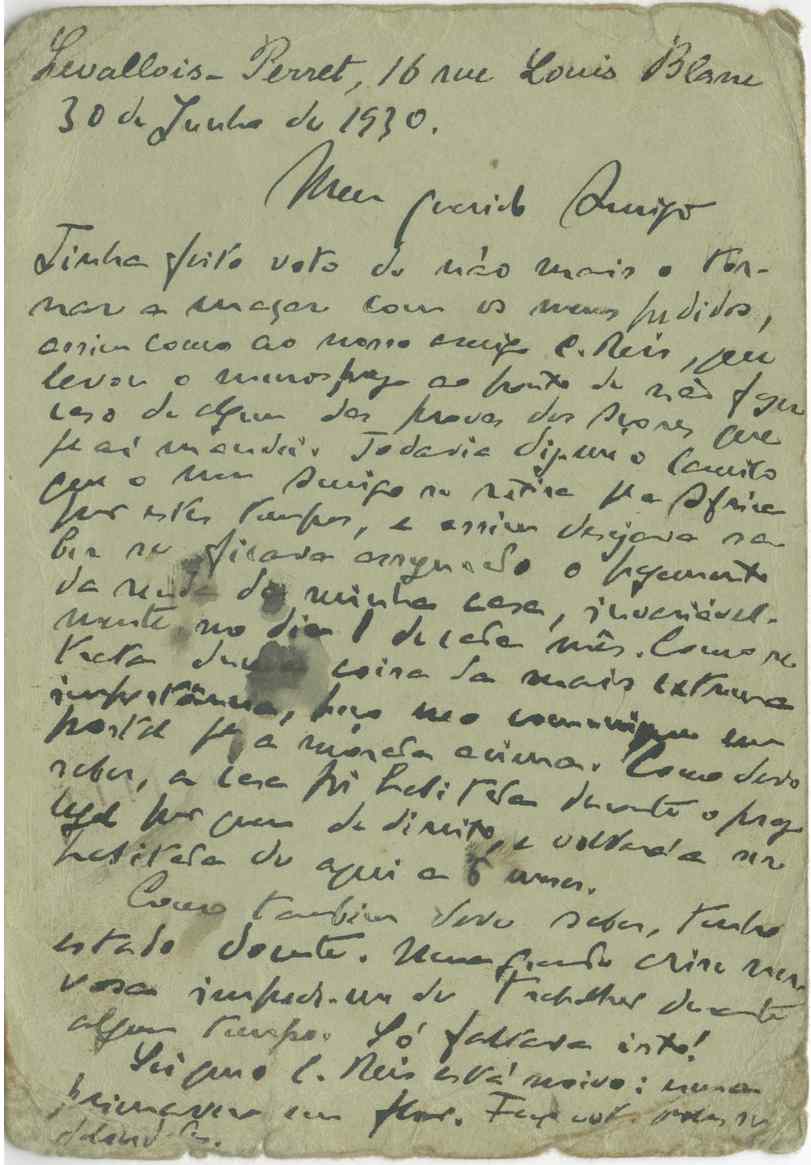 Levallois-Perret, 16 rue Louis Blanc
30 de Junho de 1930.
Meu querido Amigo
Tinha feito voto de não mais o tor-
nar a maçar com os meus pedidos,
assim como ao nosso amigo C. Reis, que
levou o menosprezo ao ponto de não fazer
caso de algum das provas dos que
pª aí mandei. Todavia o Camilo
que o meu Amigo se retira pª a Africa
por estes tempos, e assim desejava sa-
ber se ficava assegurado o pagamento
da renda da minha casa, invariável-
mente no dia 1 de cada mês. Como se
trata duma coisa da mais extrema
importância, peço me comunique em
postal pª a morada acima. Como deve
saber, a casa foi habitada durante o prazo
legal por quem de direito, e voltará a ser
habitada de aqui a 6 meses.
Como tambem deve saber, tenho
estado doente. Uma grande crise ner-
vosa impediu-me de trabalhar durante
algum tempo. Só faltava isto!
Sei que o C. Reis está noivo: uma
primavera em flor. Faço votos